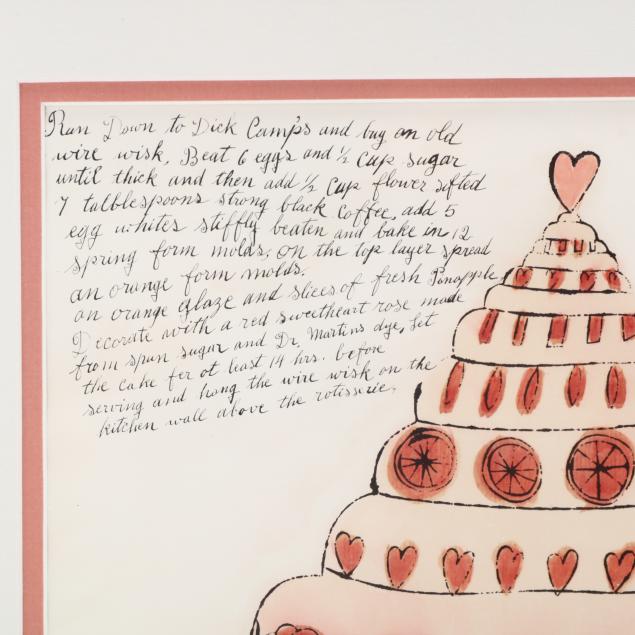 Run Down to Dick Camps and buy an old
wire wisk, Beat 6 eggs and ½ cup sugar
until thick and then add ½ cup flower sifted
7 talblespoons strong black Coffee, add 5
egg whites stiffly beaten and bake in 12
spring form molds, on the top layer spread
an orange form molds.
an orange glaze and slices of fresh Pinopple
Decorate with a red sweetheart rose made
from spun sugar and Dr. Martins dye, Let
the cake fer ot least 14 hrs. before
serving and hang the wire wisk on the
kitchen wall above the rotisserie.